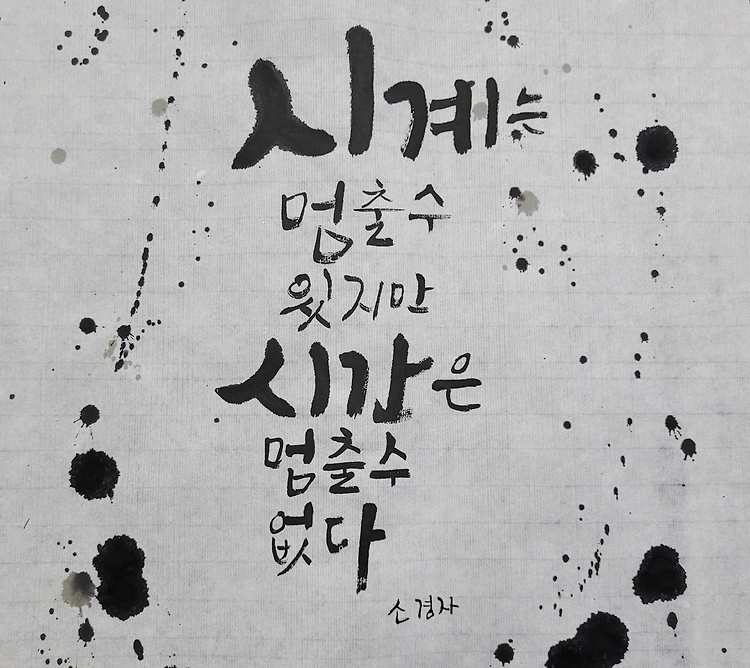 시계는
멈출수
있지만
시간은
멈출수
없다
소경자